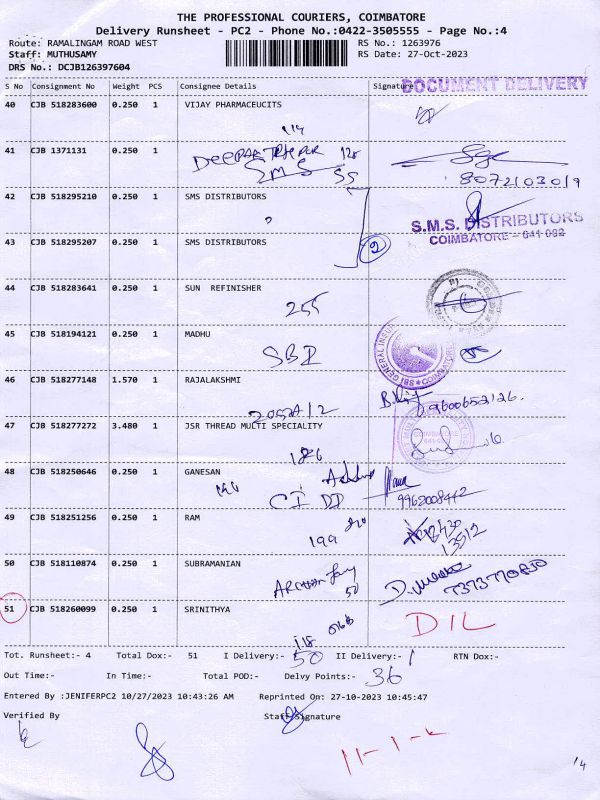 THE PROFESSIONAL COURIERS, COIMBATORE
Delivery Runsheet - PC2 - Phone No.:0422-3505555 - Page No.:4
Route: RAMALINGAM ROAD WEST RS No.: 1263976
Staff: MUTHUSAMY RS Date: 27-Oct-2023
DRS No.: DCJB126397604
DOCUMENT DELIVERY
S No Consignment No Weight PCS Consignee Details Signature
40 CJB 518283600 0.250 1 VIJAY PHARMACEUCITS
114
41 CJB 1371131 0.250 1
SMS 55
8072103019
42 CJB 518295210 0.250 1 SMS DISTRIBUTORS
S.M.S. DISTRIBUTORS
COIMBATORE - 641 002
43 CJB 518295207 0.250 1 SMS DISTRIBUTORS
2
44 CJB 518283641 0.250 1 SUN REFINISHER
255
45 CJB 518194121 0.250 1 MADHU
SBI
SBI GENERAL INSU COIMBATORE
46 CJB 518277148 1.570 1 RAJALAKSHMI
9600652126.
47 CJB 518277272 3.480 1 JSR THREAD MULTI SPECIALITY
186
48 CJB 518250646 0.250 1 GANESAN
CI DD
49 CJB 518251256 0.250 1 RAM
199
50 CJB 518110874 0.250 1 SUBRAMANIAN
50
51 CJB 518260099 0.250 1 SRINITHYA
118
DIL
Tot. Runsheet:- 4 Total Dox:- 51 I Delivery:- 50 II Delivery:- 1 RTN Dox:-
Out Time:- In Time:- Total POD:- Delvy Points:- 36
Entered By :JENIFERPC2 10/27/2023 10:43:26 AM Reprinted On: 27-10-2023 10:45:47
Verified By Staff Signature